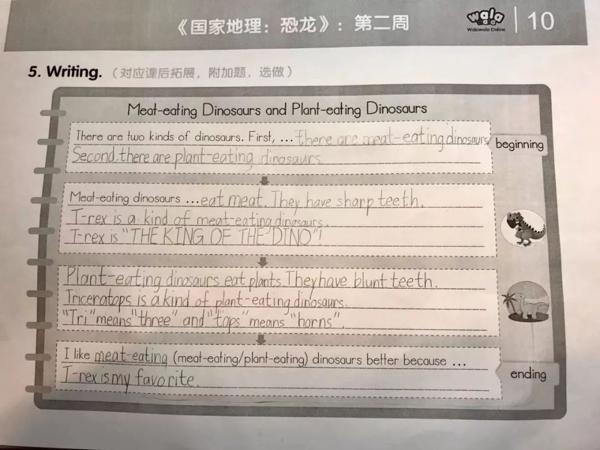 《国家地理：恐龙》：第二周
wala
Walawala Online
10
5. Writing. （对应课后拓展，附加题，选做）
Meat-eating Dinosaurs and Plant-eating Dinosaurs
There are two kinds of dinosaurs. First, ... there are meat-eating dinosaurs
Second, there are plant-eating dinosaurs
beginning
Meat-eating dinosaurs ... eat meat. They have sharp teeth.
T-rex is a kind of meat-eating dinosaurs.
T-rex is "THE KING OF THE DINO"!
Plant-eating dinosaurs eat plants. They have blunt teeth.
Triceratops is a kind of plant-eating dinosaurs.
"Tri" means "three" and "tops" means "horns".
I like meat-eating (meat-eating/plant-eating) dinosaurs better because ...
T-rex is my favorite.
ending